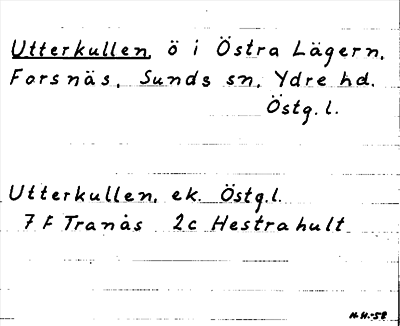 Utterkullen, ö i Östra Lägern,
Forsnäs, Sunds sn, Ydre hd.
Östg.l.
Utterkullen, ek. Östg.l.
7 F Tranås 2c Hestrahult
H.H.-58